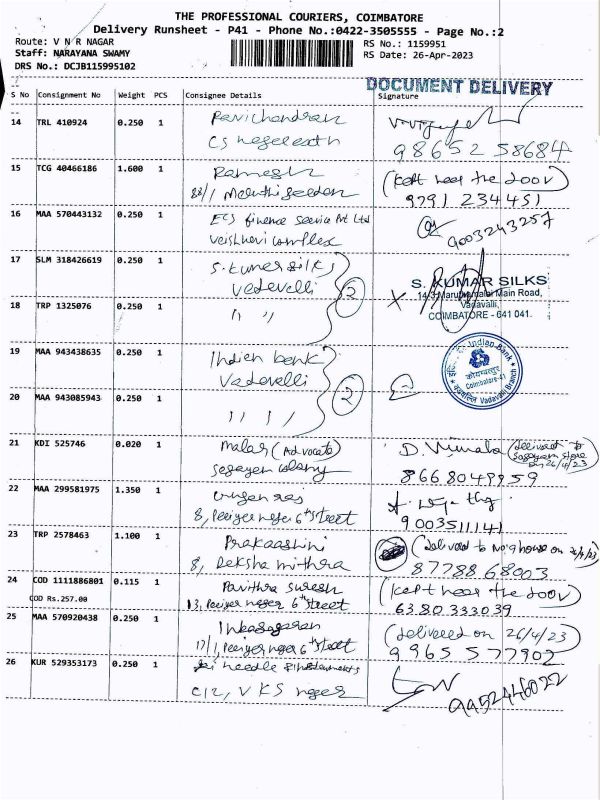 THE PROFESSIONAL COURIERS, COIMBATORE
Delivery Runsheet - P41 - Phone No.:0422-3505555 - Page No.:2
Route: V N R NAGAR
Staff: NARAYANA SWAMY
DRS No.: DCJB115995102
RS No.: 1159951
RS Date: 26-Apr-2023
DOCUMENT DELIVERY
S No Consignment No Weight PCS Consignee Details Signature
14 TRL 410924 0.250 1 Ravichandran
98652 58684
15 TCG 40466186 1.600 1 Ramesh (kept near the door)
88/1 9791 234451
16 MAA 570443132 0.250 1 ECS finance service Pvt Ltd
complex 9003243257
17 SLM 318426619 0.250 1 S. kumar silks
Vadavelli 2
S. KUMAR SILKS
14/3 Maruthamalai Main Road,
Vadavalli,
COIMBATORE - 641 041.
18 TRP 1325076 0.250 1 " "
19 MAA 943438635 0.250 1 Indian bank
Vadavelli 2
Indian Bank
कोयम्बत्तूर
Coimbatore-41
Vadavalli Branch
20 MAA 943085943 0.250 1
21 KDI 525746 0.020 1 malar (Advocate) D. Vimala (delivered to
store on 26/4/23)
colony 8668049859
22 MAA 299581975 1.350 1
8, Periyar nager 6th street 9003511141
23 TRP 2578463 1.100 1 Prakaashini (delivered to No 9 house on 26/4/23)
8, Deksha mithra 87788 68003
24 COD 1111886801 0.115 1 Pavithra suresh (kept near the door)
COD Rs.257.00 13, Periyar nager 6th street 6380333039
25 MAA 570920438 0.250 1 (delivered on 26/4/23)
17/1, Periyar nager 6th street 9965 577902
26 KUR 529353173 0.250 1 needle
C12, V K S nager 9952446022